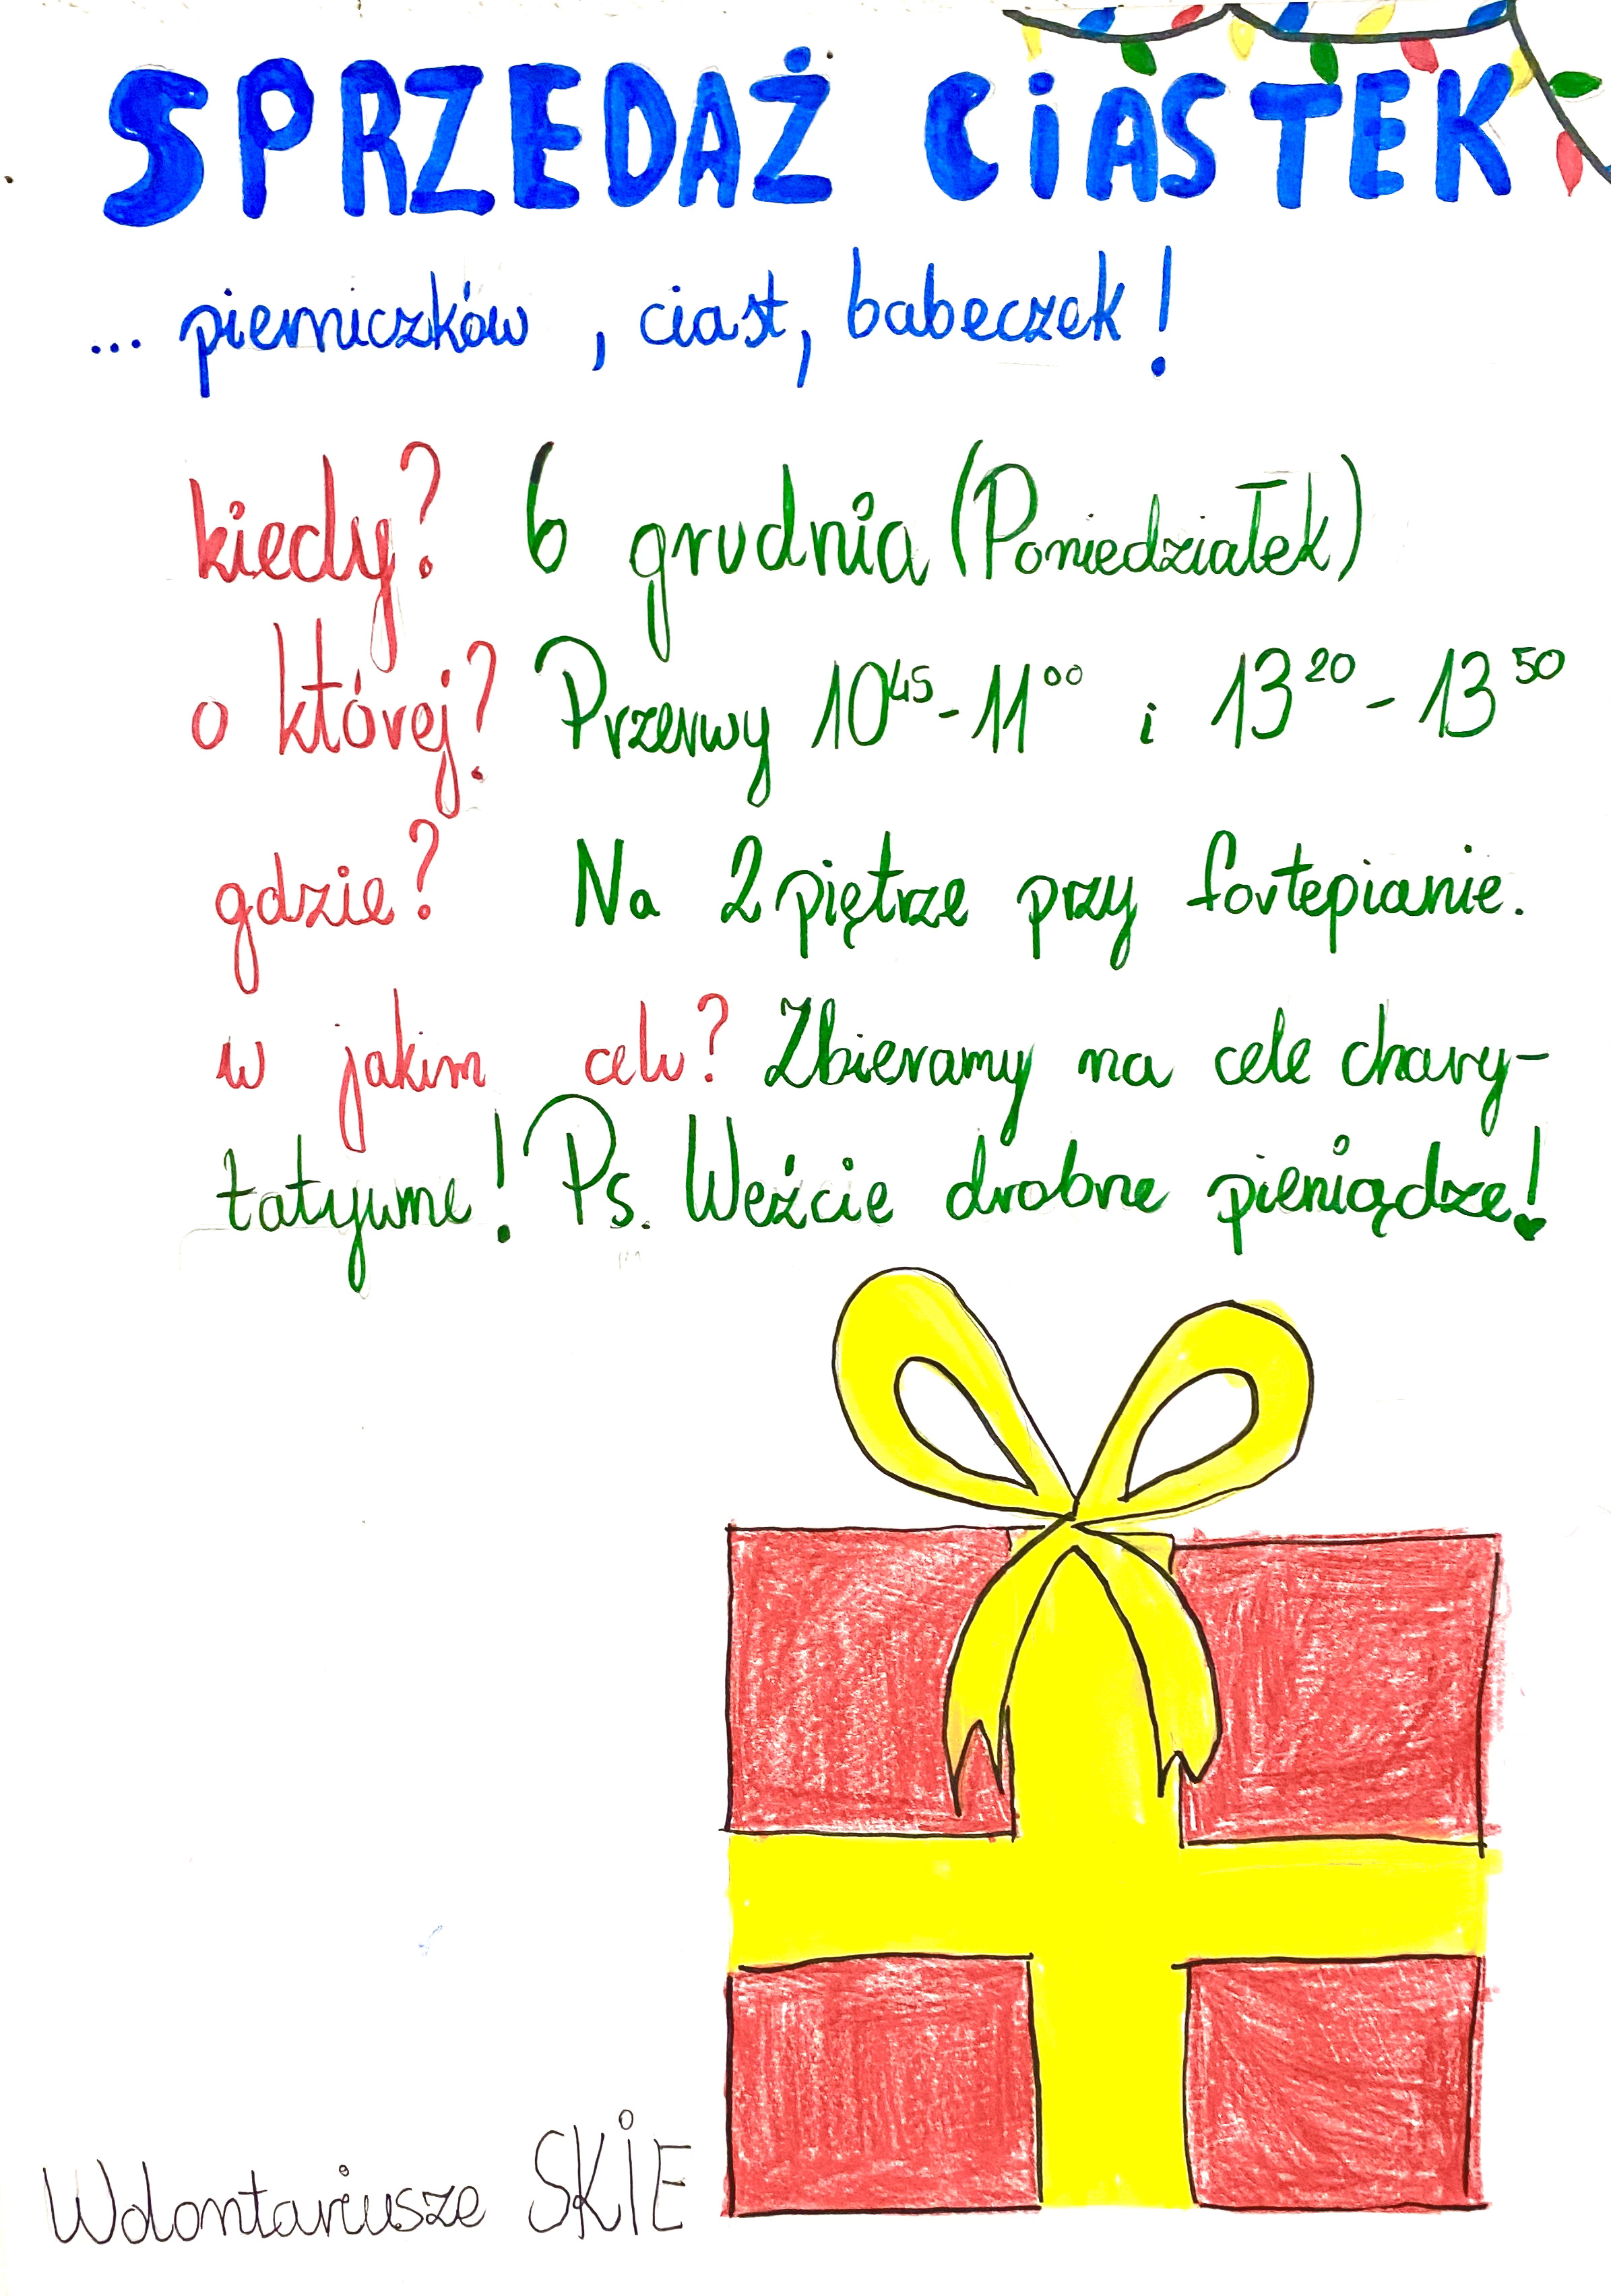 SPRZEDAŻ CIASTEK
... pierniczków, ciast, babeczek!
kiedy? 6 grudnia (Poniedziałek)
o której? Przerwy 10⁴⁵-11⁰⁰ i 13²⁰-13⁵⁰
gdzie? Na 2 piętrze przy fortepianie.
w jakim celu? Zbieramy na cele chary-
tatywne! Ps. Weźcie drobne pieniądze!
Wolontariusze SKIE